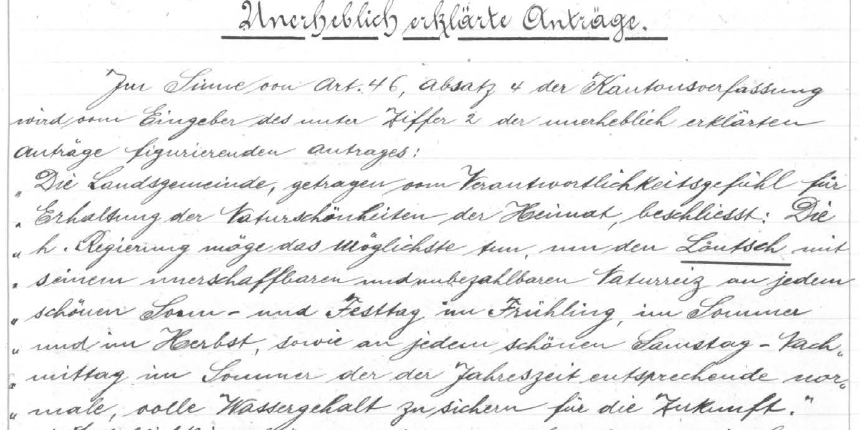 Unerheblich erklärte Anträge.
Im Sinne von Art. 46, Absatz 4 der Kantonsverfassung
wird vom Eingeber des unter Ziffer 2 der unerheblich erklärten
Anträge figurierenden Antrages:
„Die Landsgemeinde, getragen vom Verantwortlichkeitsgefühl für
„Erhaltung der Naturschönheiten der Heimat, beschliesst: Die
„h. Regierung möge das Möglichste tun, um den Löntsch mit
„seinem unerschaffbaren und unbezahlbaren Naturreiz an jedem
„schönen Sonn- und Festtag im Frühling, im Sommer
„und im Herbst, sowie an jedem schönen Samstag-Nach„
„mittag im Sommer der der Jahreszeit entsprechende nor„
„male, volle Wassergehalt zu sichern für die Zukunft."